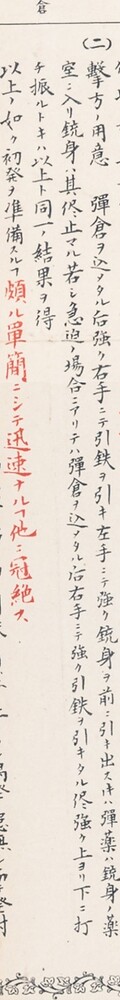 倉
(二)
撃方ノ用意　彈倉ヲ込メタル后強ク右手ニテ引鉄ヲ引キ左手ニテ強ク銃身ヲ前ニ引キ出スキハ彈薬ハ銃身ノ薬
室ニ入リ銃身ハ其侭止マル若シ急迫ノ場合ニアリテハ彈倉ヲ込メタル后右手ニテ強ク引鉄ヲ引キタル侭強ク上ヨリ下ニ打
チ振ルトキハ以上ト同一ノ結果ヲ得
以上ノ如ク初発ヲ準備スルヿ頗ル單簡ニシテ迅速ナルヿ他ニ冠絶ス